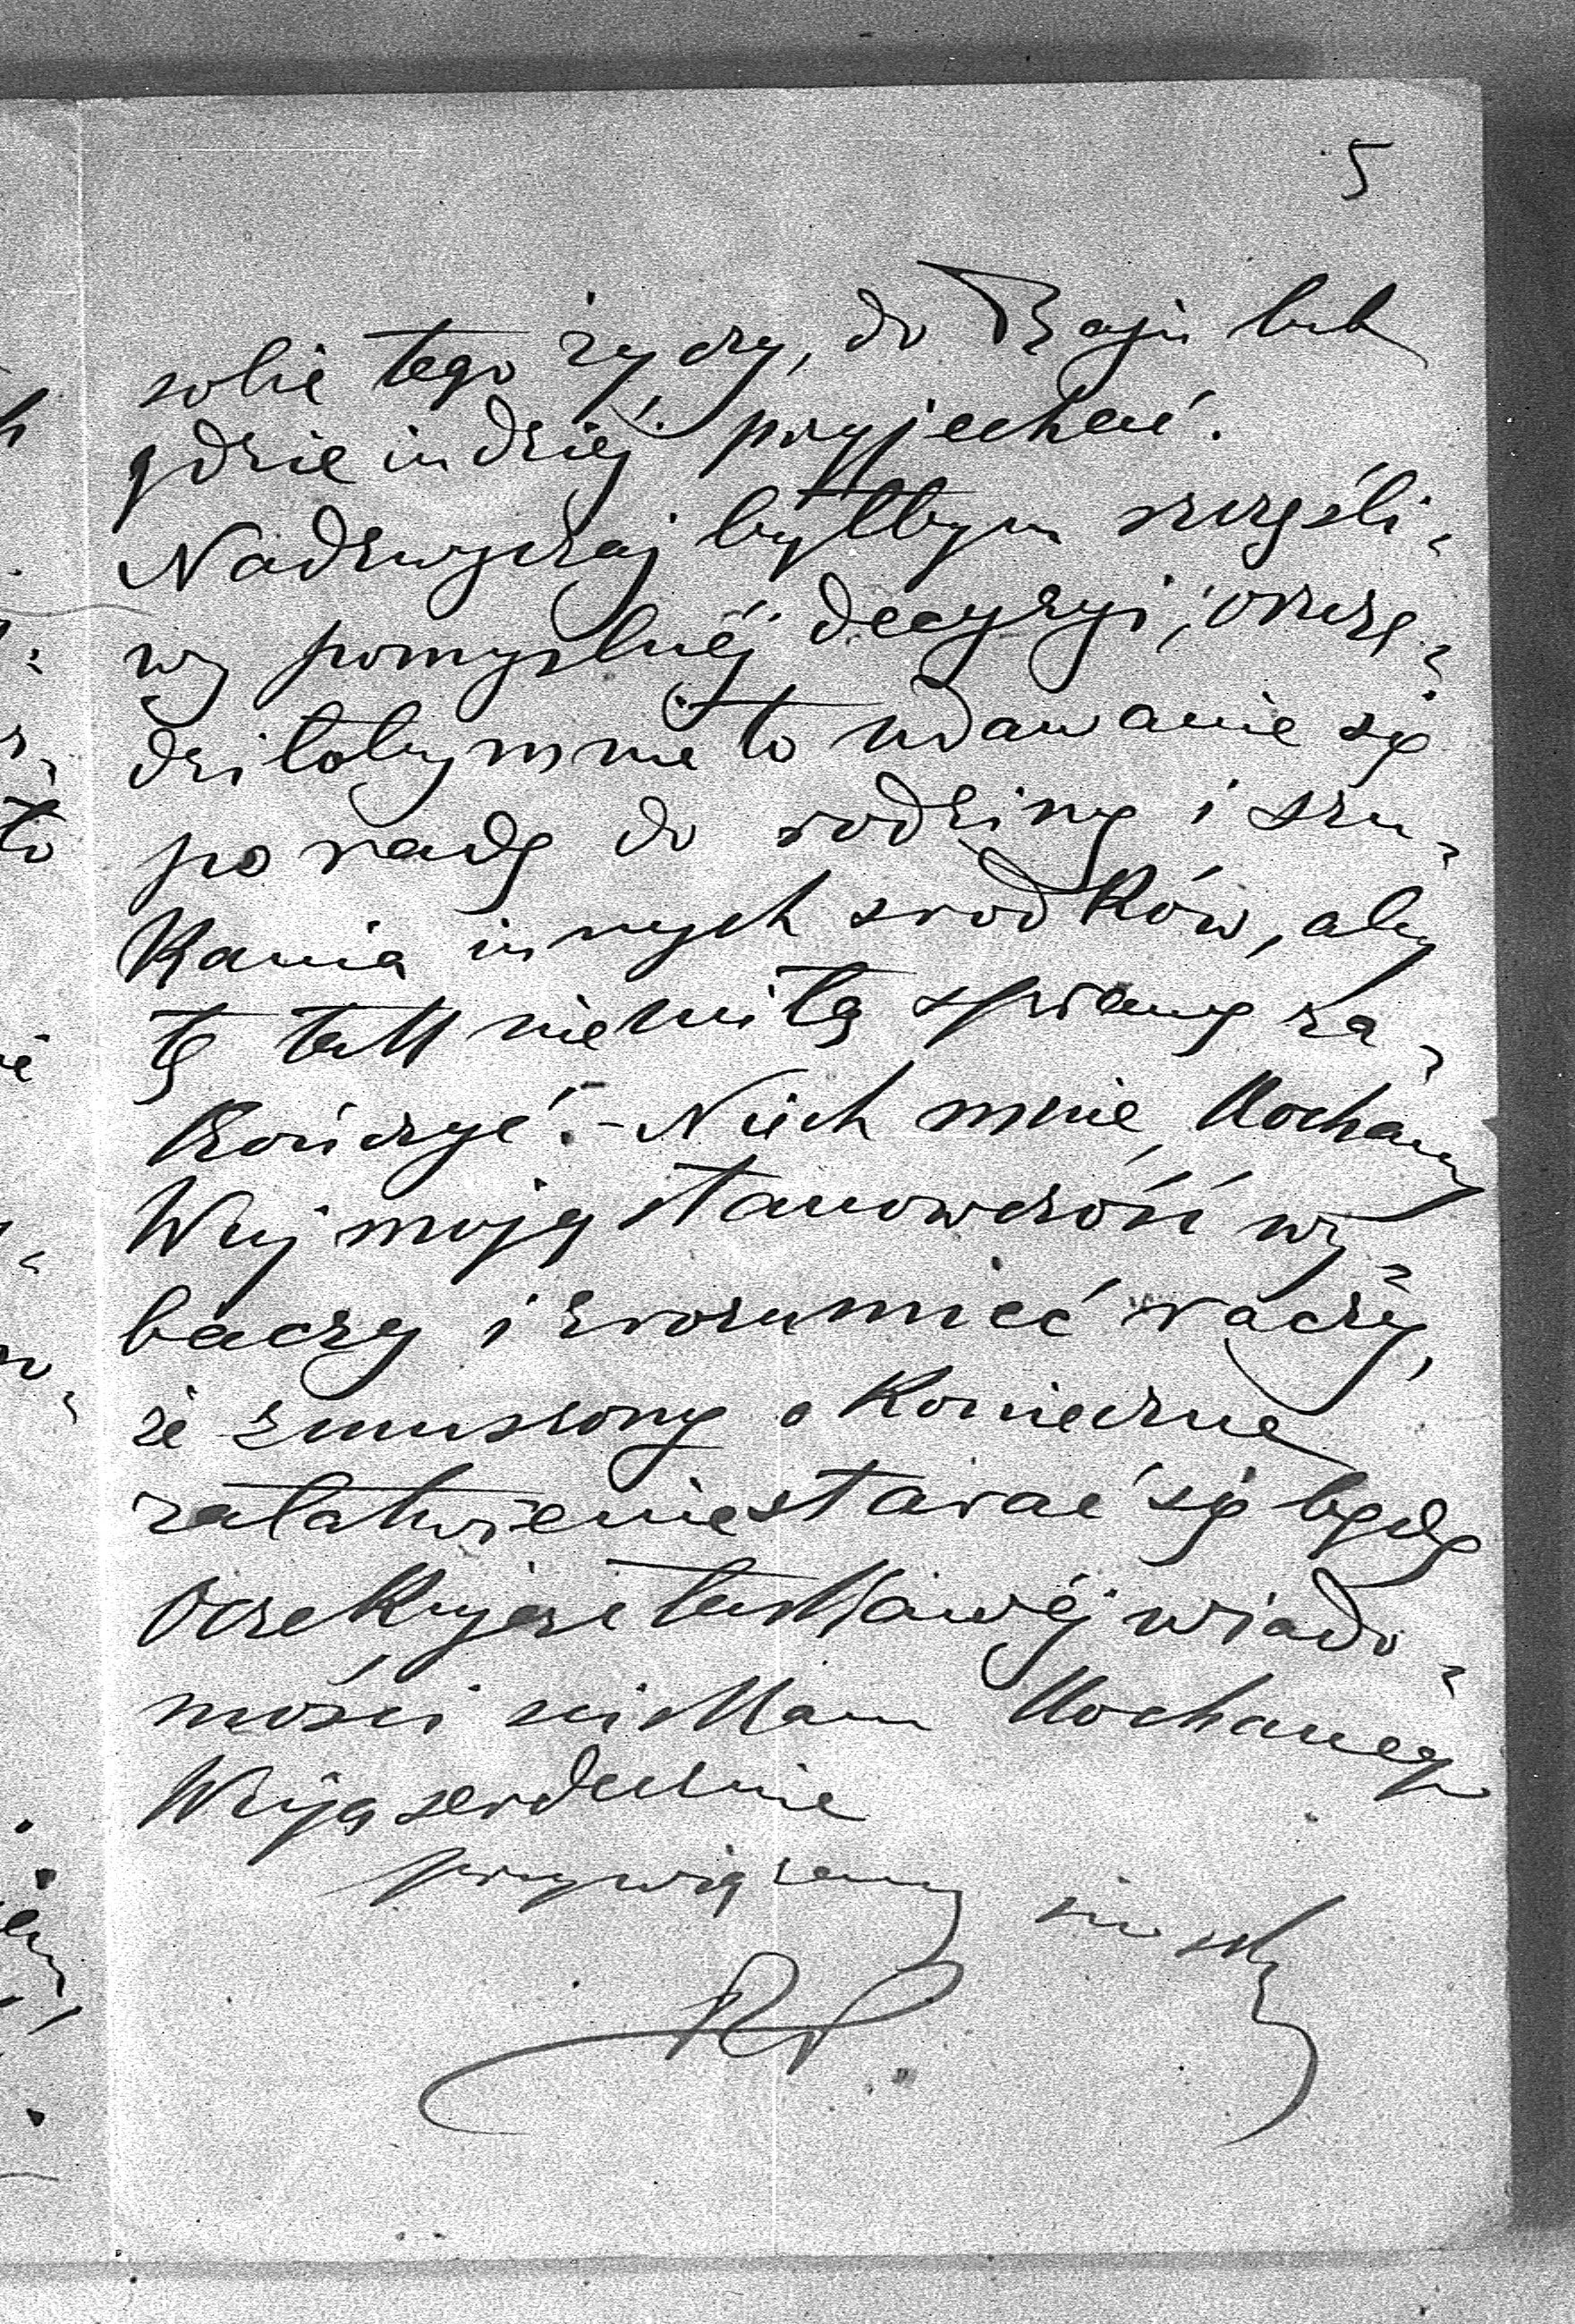 5
sobie tego życzy, do Raju lub
gdzieindziéj przyjechać.
Nadzwyczaj byłbym szczęśli-
wy pomyślnéj decyzyi; oszczę-
dziłoby mnie to udawanie się
po radę do rodziny i szu-
kania innych srodków, aby
tę tak niemiłą sprawę za-
kończyć. - Niech mnie, Kochany
Wuj moją stanowczość wy-
baczy i zrozumieć raczy,
że zmuszony o konieczne
załatwienie starać się będę
Oczekując łaskawéj wiado-
mości ściskam Kochanego
Wuja serdecznie
przywiązany